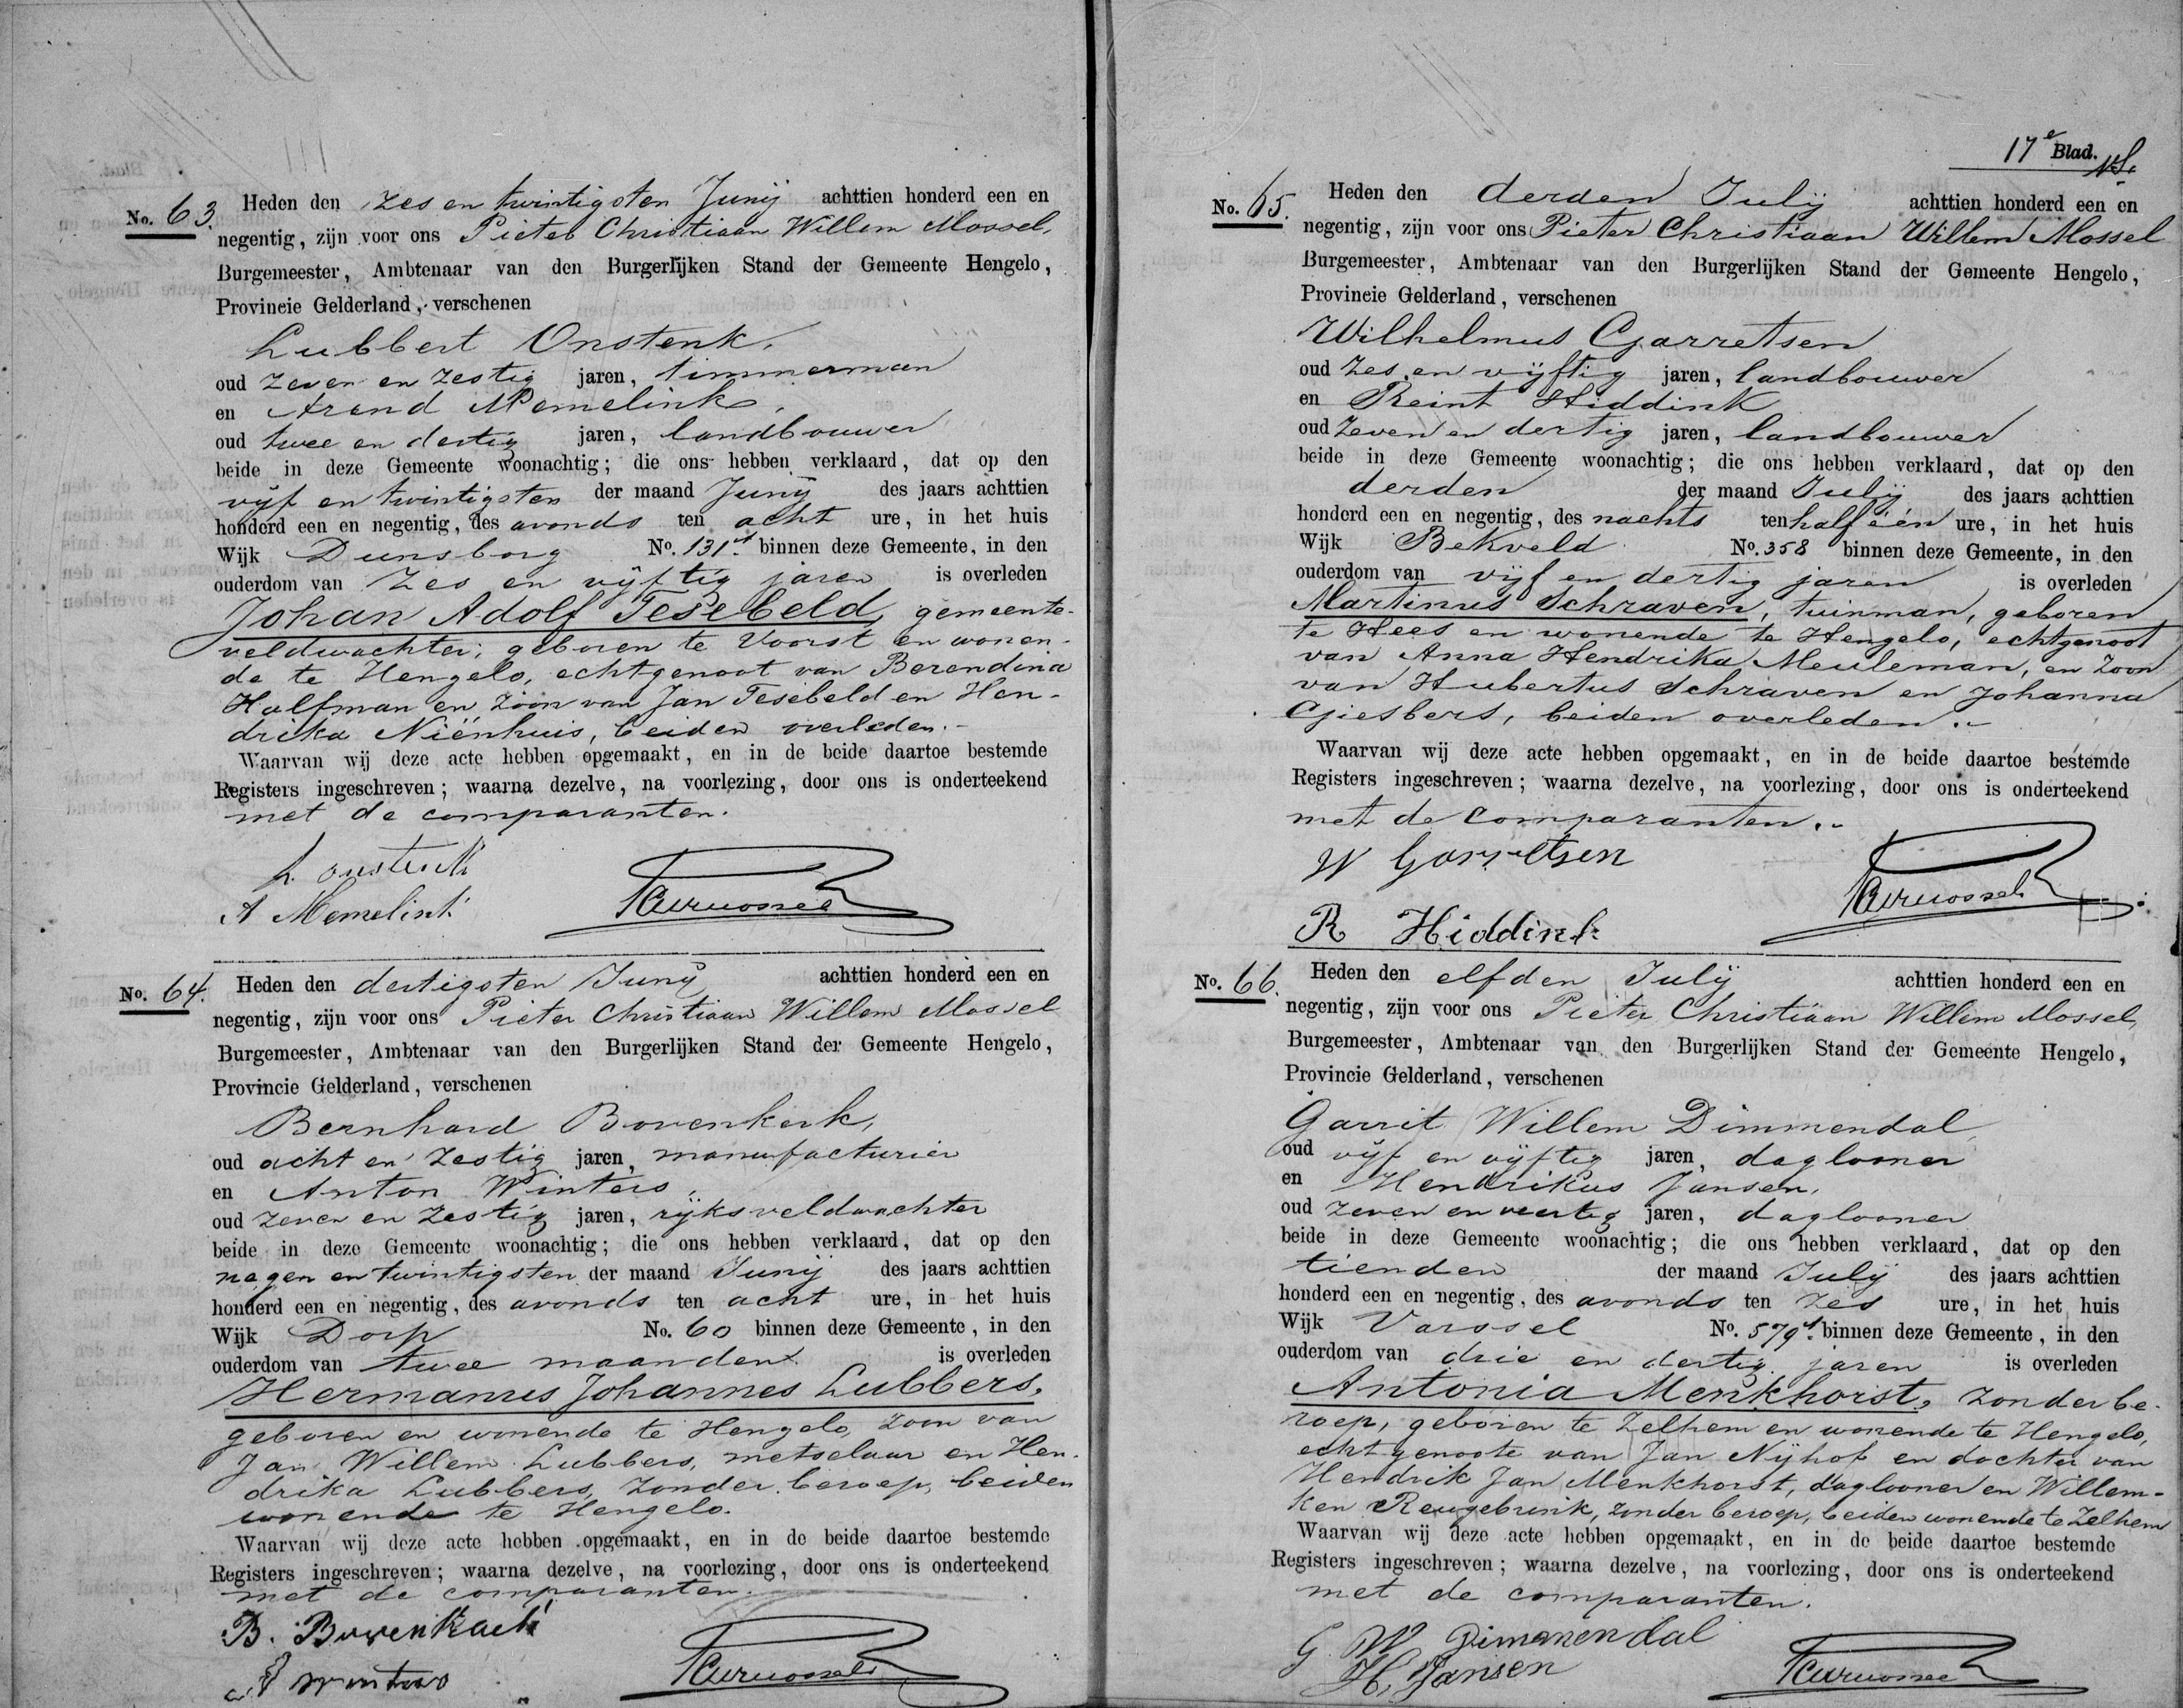 No. 63. Heden den zes en twintigsten Junij achttien honderd een en
negentig, zijn voor ons Pieter Christiaan Willem Mossel,
Burgemeester, Ambtenaar van den Burgerlijken Stand der Gemeente Hengelo,
Provincie Gelderland, verschenen
Lubbert Onstenk,
oud zeven en zestig jaren, timmerman
en Arend Memelink,
oud twee en dertig jaren, landbouwer
beide in deze Gemeente woonachtig; die ons hebben verklaard, dat op den
vijf en twintigsten der maand Junij des jaars achttien
honderd een en negentig, des avonds ten acht ure, in het huis
Wijk Dunsborg No. 131d. binnen deze Gemeente, in den
ouderdom van zes en vijftig jaren is overleden
Johan Adolf Tesebeld, gemeente-
veldwachter, geboren te Voorst en wonen-
de te Hengelo, echtgenoot van Berendina
Halfman en zoon van Jan Tesebeld en Hen-
drika Niënhuis, beiden overleden.-
Waarvan wij deze acte hebben opgemaakt, en in de beide daartoe bestemde
Registers ingeschreven; waarna dezelve, na voorlezing, door ons is onderteekend
met de comparanten.
L. Onstenk
A Memelink
PCWMossel
No. 64. Heden den dertigsten Junij achttien honderd een en
negentig, zijn voor ons Pieter Christiaan Willem Mossel
Burgemeester, Ambtenaar van den Burgerlijken Stand der Gemeente Hengelo,
Provincie Gelderland, verschenen
Bernhard Bovenkerk,
oud acht en zestig jaren, manufacturier
en Anton Winters,
oud zeven en zestig jaren, rijksveldwachter
beide in deze Gemeente woonachtig; die ons hebben verklaard, dat op den
negen en twintigsten der maand Junij des jaars achttien
honderd een en negentig, des avonds ten acht ure, in het huis
Wijk Dorp No. 60 binnen deze Gemeente, in den
ouderdom van twee maanden is overleden
Hermanus Johannes Lubbers,
geboren en wonende te Hengelo, zoon van
Jan Willem Lubbers, metselaar en Hen-
drika Lubbers, zonder beroep, beiden
wonende te Hengelo.
Waarvan wij deze acte hebben opgemaakt, en in de beide daartoe bestemde
Registers ingeschreven; waarna dezelve, na voorlezing, door ons is onderteekend
met de comparanten.
B. Bovenkerk
A Winters
PCWMossel
17e Blad.
No. 65. Heden den derden Julij achttien honderd een en
negentig, zijn voor ons Pieter Christiaan Willem Mossel
Burgemeester, Ambtenaar van den Burgerlijken Stand der Gemeente Hengelo,
Provincie Gelderland, verschenen
Wilhelmus Garretsen
oud zes en vijftig jaren, landbouwer
en Reint Hiddink
oud zeven en dertig jaren, landbouwer
beide in deze Gemeente woonachtig; die ons hebben verklaard, dat op den
derden der maand Julij des jaars achttien
honderd een en negentig, des nachts ten half één ure, in het huis
Wijk Bekveld No. 358 binnen deze Gemeente, in den
ouderdom van vijf en dertig jaren is overleden
Martinus Schraven, tuinman, geboren
te Hees en wonende te Hengelo, echtgenoot
van Anna Hendrika Meuleman, en zoon
van Hubertus Schraven en Johanna
Giesbers, beiden overleden.-
Waarvan wij deze acte hebben opgemaakt, en in de beide daartoe bestemde
Registers ingeschreven; waarna dezelve, na voorlezing, door ons is onderteekend
met de comparanten.-
W Garretsen
PCWMossel
R Hiddink
No. 66. Heden den elfden Julij achttien honderd een en
negentig, zijn voor ons Pieter Christiaan Willem Mossel,
Burgemeester, Ambtenaar van den Burgerlijken Stand der Gemeente Hengelo,
Provincie Gelderland, verschenen
Garrit Willem Dimmendal,
oud vijf en vijftig jaren, daglooner
en Hendrikus Jansen,
oud zeven en veertig jaren, daglooner
beide in deze Gemeente woonachtig; die ons hebben verklaard, dat op den
tienden der maand Julij des jaars achttien
honderd een en negentig, des avonds ten zes ure, in het huis
Wijk Varssel No. 579d. binnen deze Gemeente, in den
ouderdom van drie en dertig jaren is overleden
Antonia Menkhorst, zonder be-
roep, geboren te Zelhem en wonende te Hengelo,
echtgenoote van Jan Nijhof en dochter van
Hendrik Jan Menkhorst, daglooner en Willem-
ken Reugebrink, zonder beroep, beiden wonende te Zelhem
Waarvan wij deze acte hebben opgemaakt, en in de beide daartoe bestemde
Registers ingeschreven; waarna dezelve, na voorlezing, door ons is onderteekend
met de comparanten.
G W Dimmendal
H, Jansen
PCWMossel